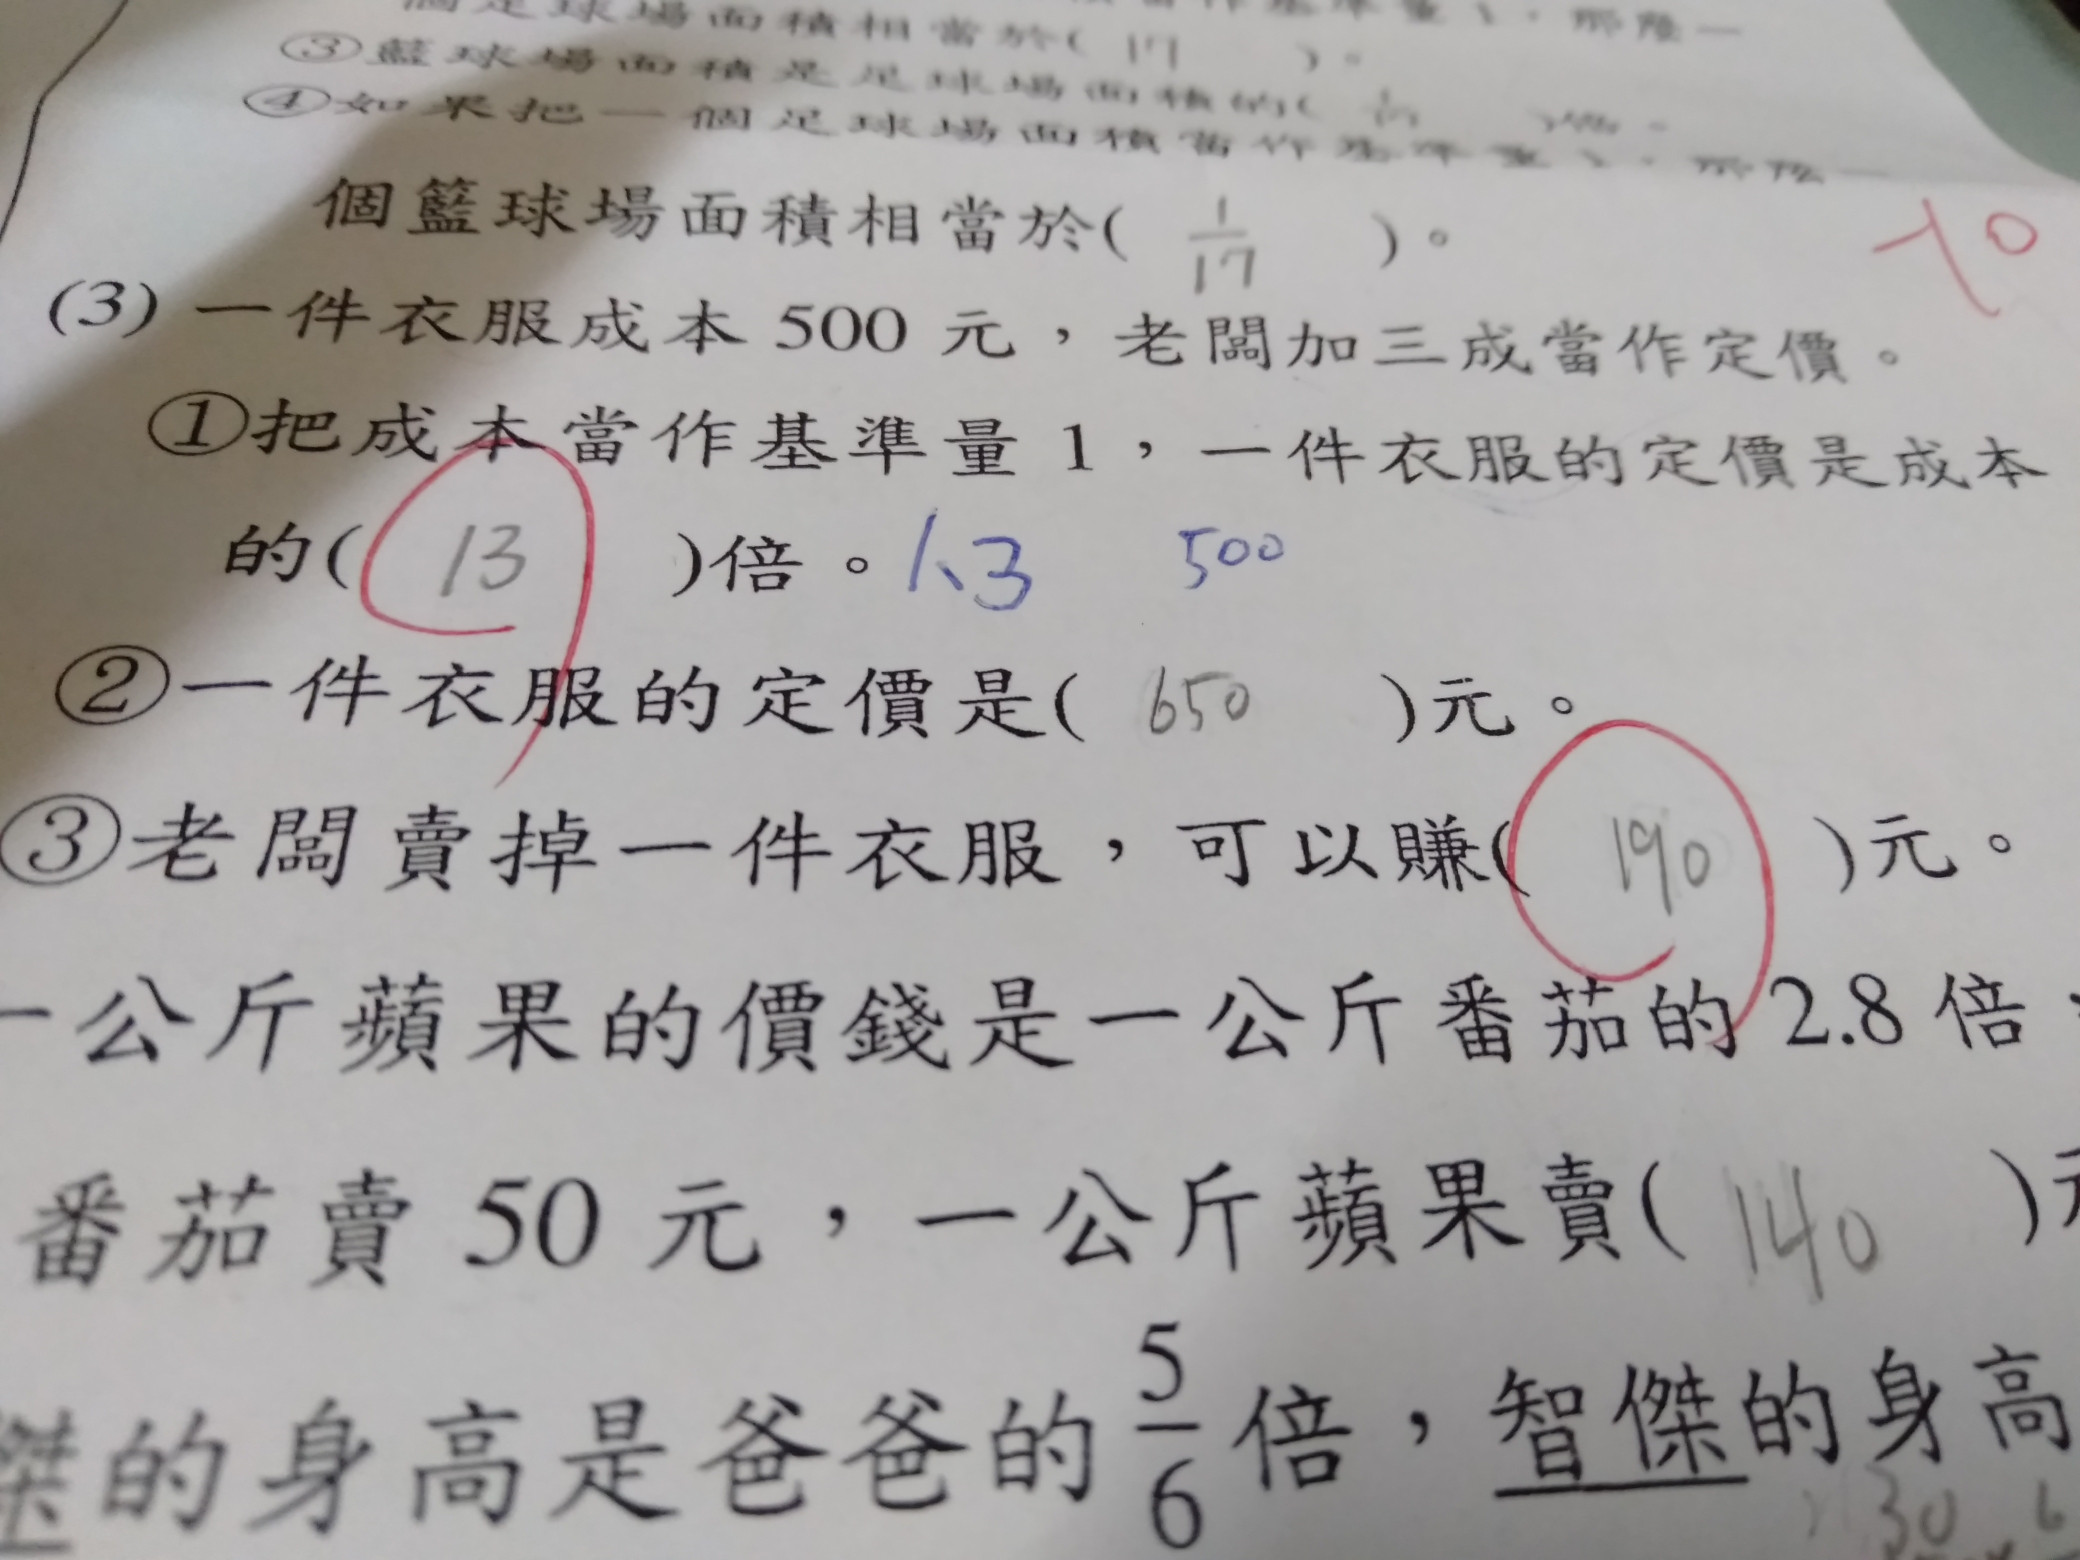 個足球場面積相當於( 17 )。
③籃球場面積是足球場面積的(
④如果把一個足球場面積當作基準量1，那麼一
個籃球場面積相當於( 1/17 )。
(3) 一件衣服成本 500 元，老闆加三成當作定價。
①把成本當作基準量 1，一件衣服的定價是成本
的( 13 )倍。1.3 500
②一件衣服的定價是( 650 )元。
③老闆賣掉一件衣服，可以賺( 190 )元。
一公斤蘋果的價錢是一公斤番茄的 2.8 倍，
番茄賣 50 元，一公斤蘋果賣( 140 )元
傑的身高是爸爸的 5/6 倍，智傑的身高